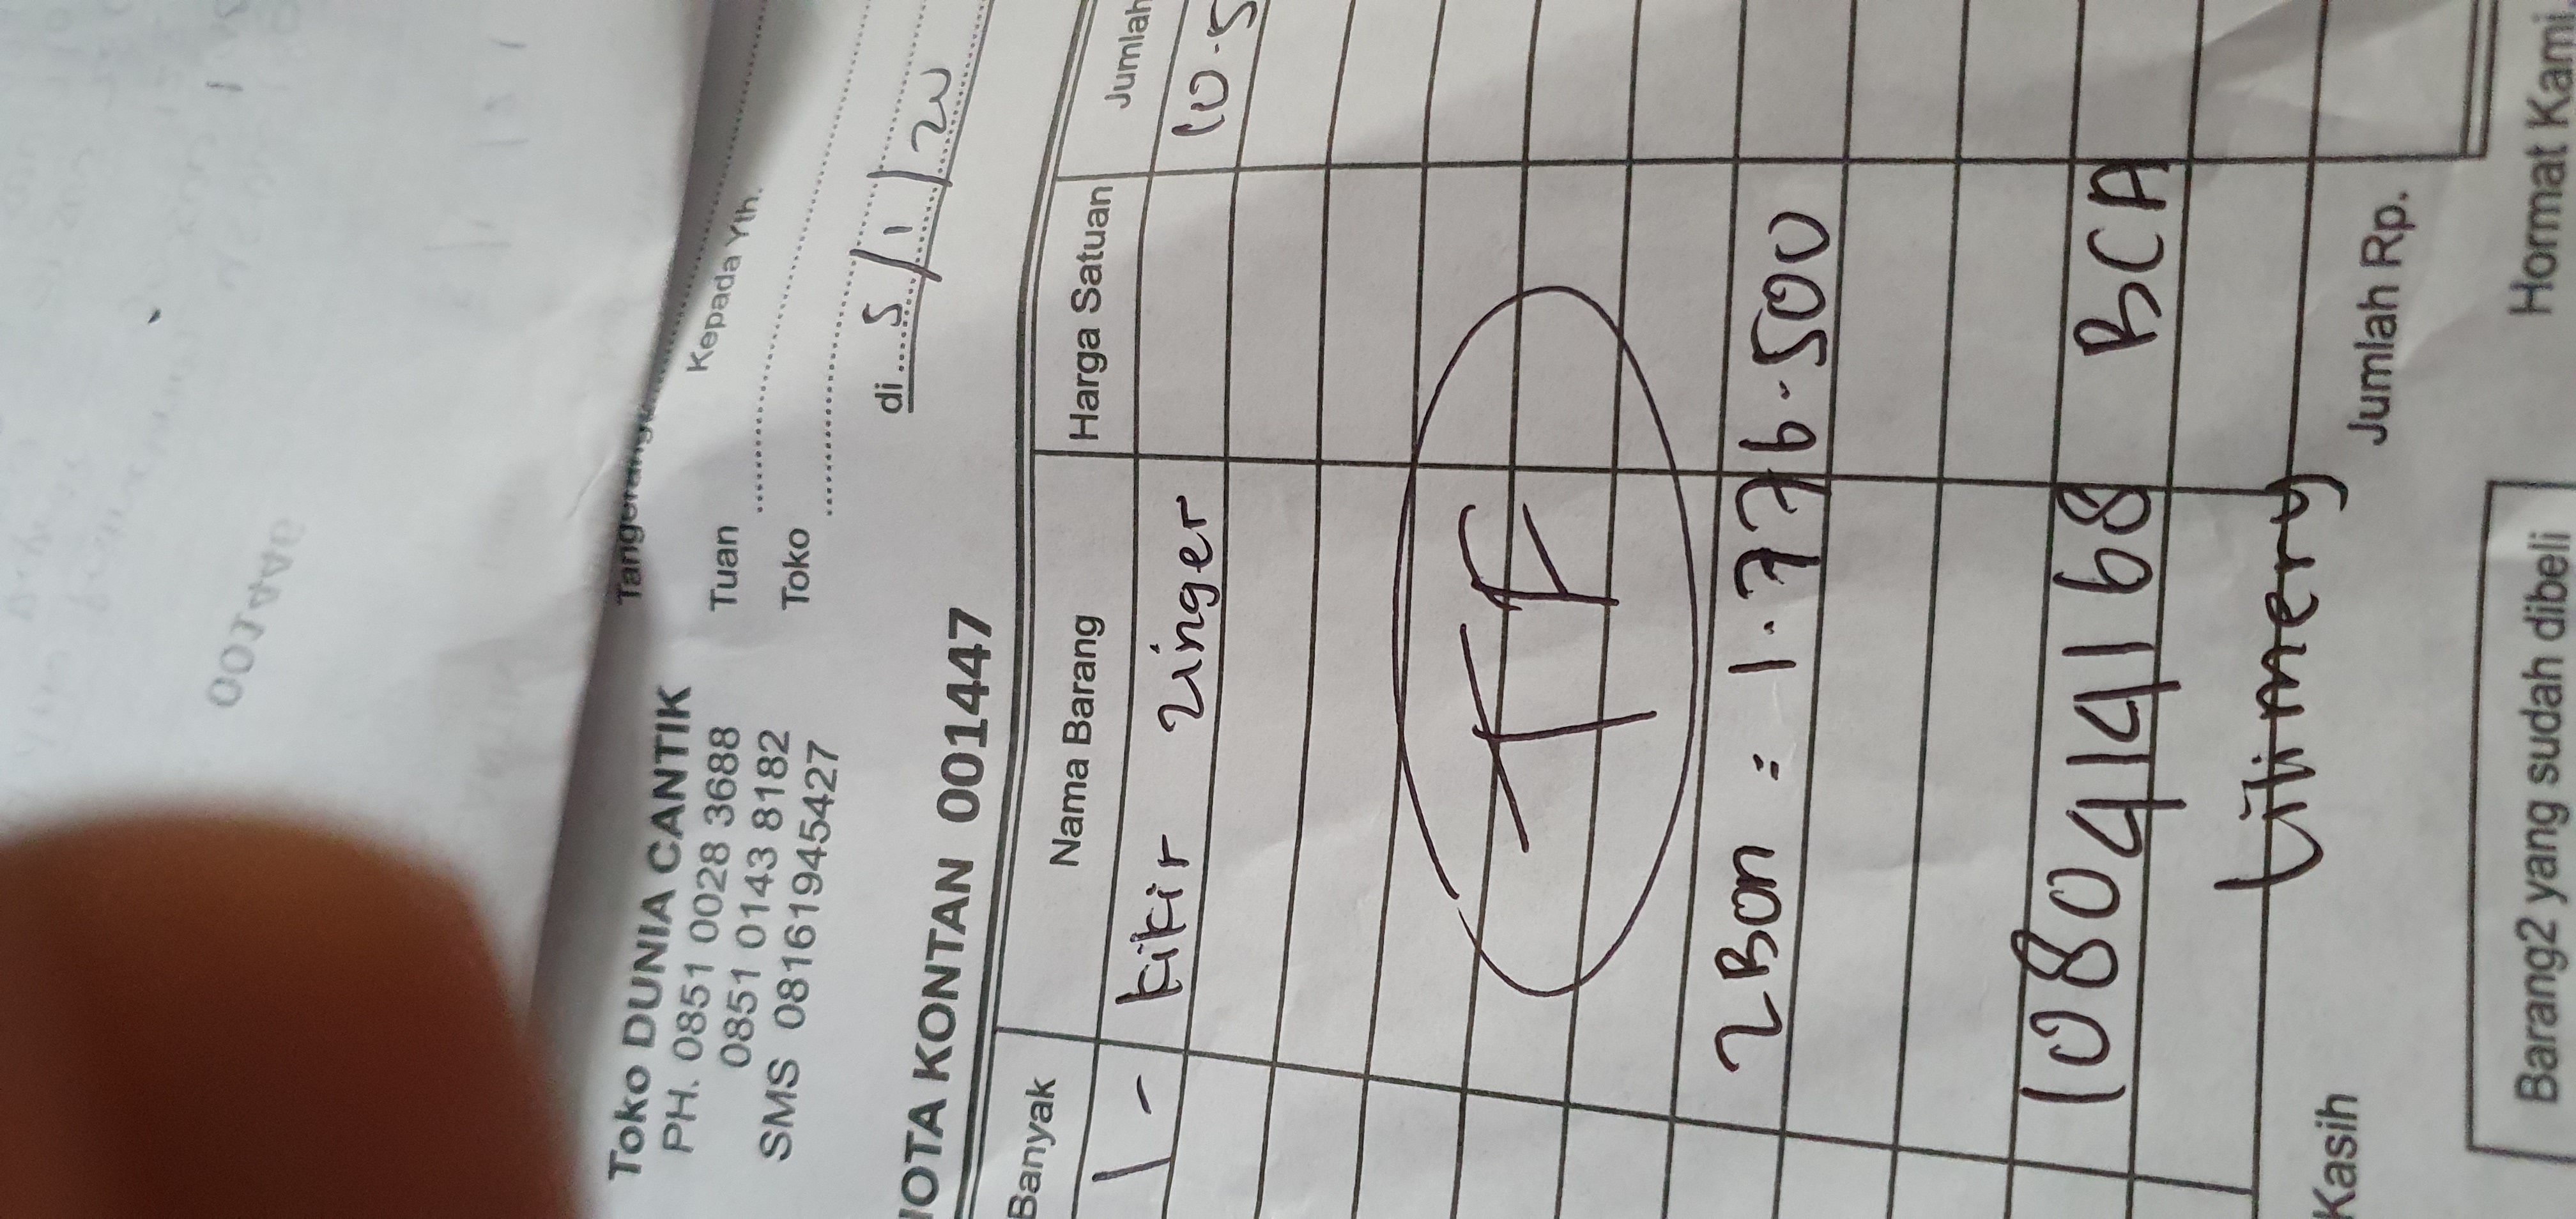 Toko DUNIA CANTIK
PH. 0851 0028 3688
0851 0143 8182
SMS 081619945427
Kepada Yth.
Tuan
Toko
di 5/1/20
NOTA KONTAN 001447
Banyak Nama Barang Harga Satuan Jumlah
1 - kikir zinger 10.5
TF
2 Bon = 1.776.500
1080414168 BCA
Jumlah Rp.
Kasih
Barang2 yang sudah dibeli
Hormat Kami,